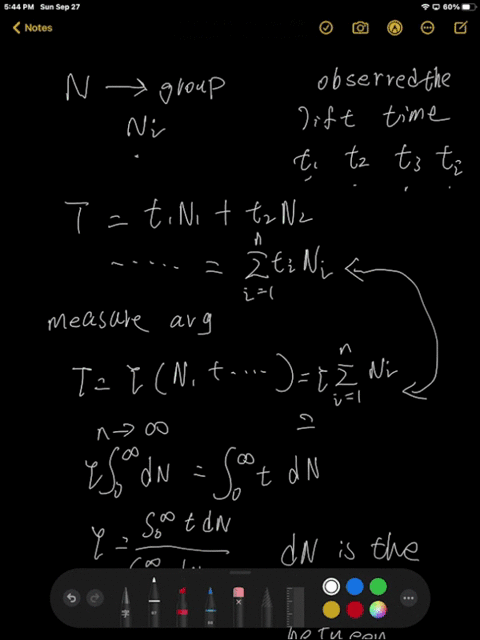 5:44 PM Sun Sep 27
60%
Notes
N → group
Ni
observed the
lift time
t₁ t₂ t₃ tᵢ
T = t₁N₁ + t₂N₂
..... = ∑ᵢ₌₁ⁿ tᵢ Nᵢ
measure avg
T = τ (N₁ + ....) = τ ∑ᵢ₌₁ⁿ Nᵢ
n → ∞
τ∫₀^∞ dN = ∫₀^∞ t dN
τ = ∫₀^∞ t dN
dN is the
between